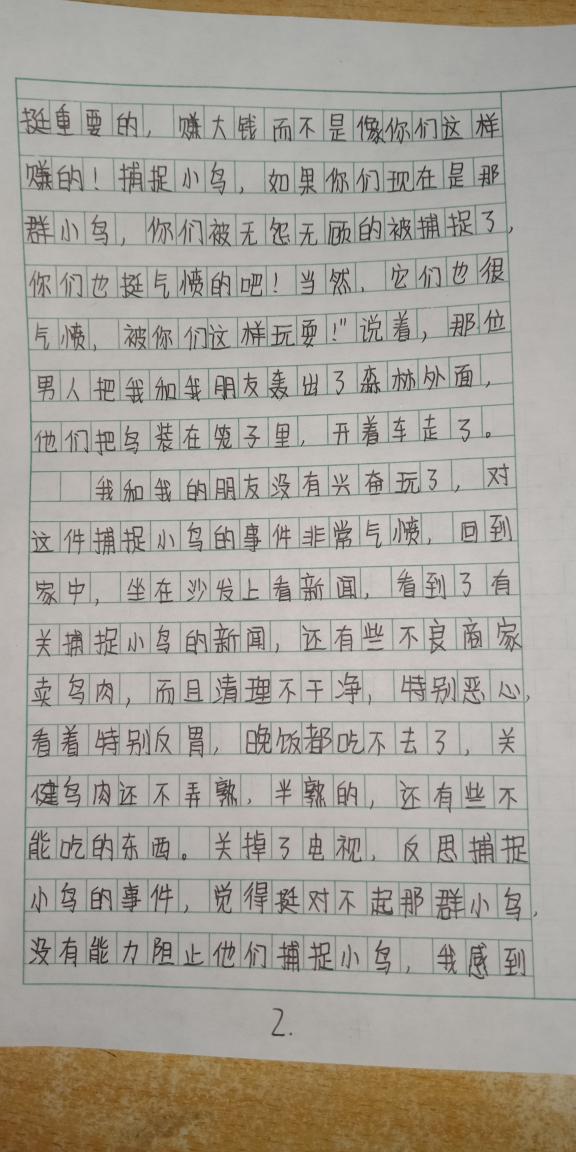 挺重要的，赚大钱而不是像你们这样
赚的！捕捉小鸟，如果你们现在是那
群小鸟，你们被无怨无顾的被捕捉了，
你们也挺气愤的吧！当然，它们也很
气愤，被你们这样玩耍！”说着，那位
男人把我和我朋友轰出了森林外面，
他们把鸟装在笼子里，开着车走了。
我和我的朋友没有兴奋玩了，对
这件捕捉小鸟的事件非常气愤，回到
家中，坐在沙发上看新闻，看到了有
关捕捉小鸟的新闻，还有些不良商家
卖鸟肉，而且清理不干净，特别恶心，
看着特别反胃，晚饭都吃不去了，关
健鸟肉还不弄熟，半熟的，还有些不
能吃的东西。关掉了电视，反思捕捉
小鸟的事件，觉得挺对不起那群小鸟，
没有能力阻止他们捕捉小鸟，我感到
2.